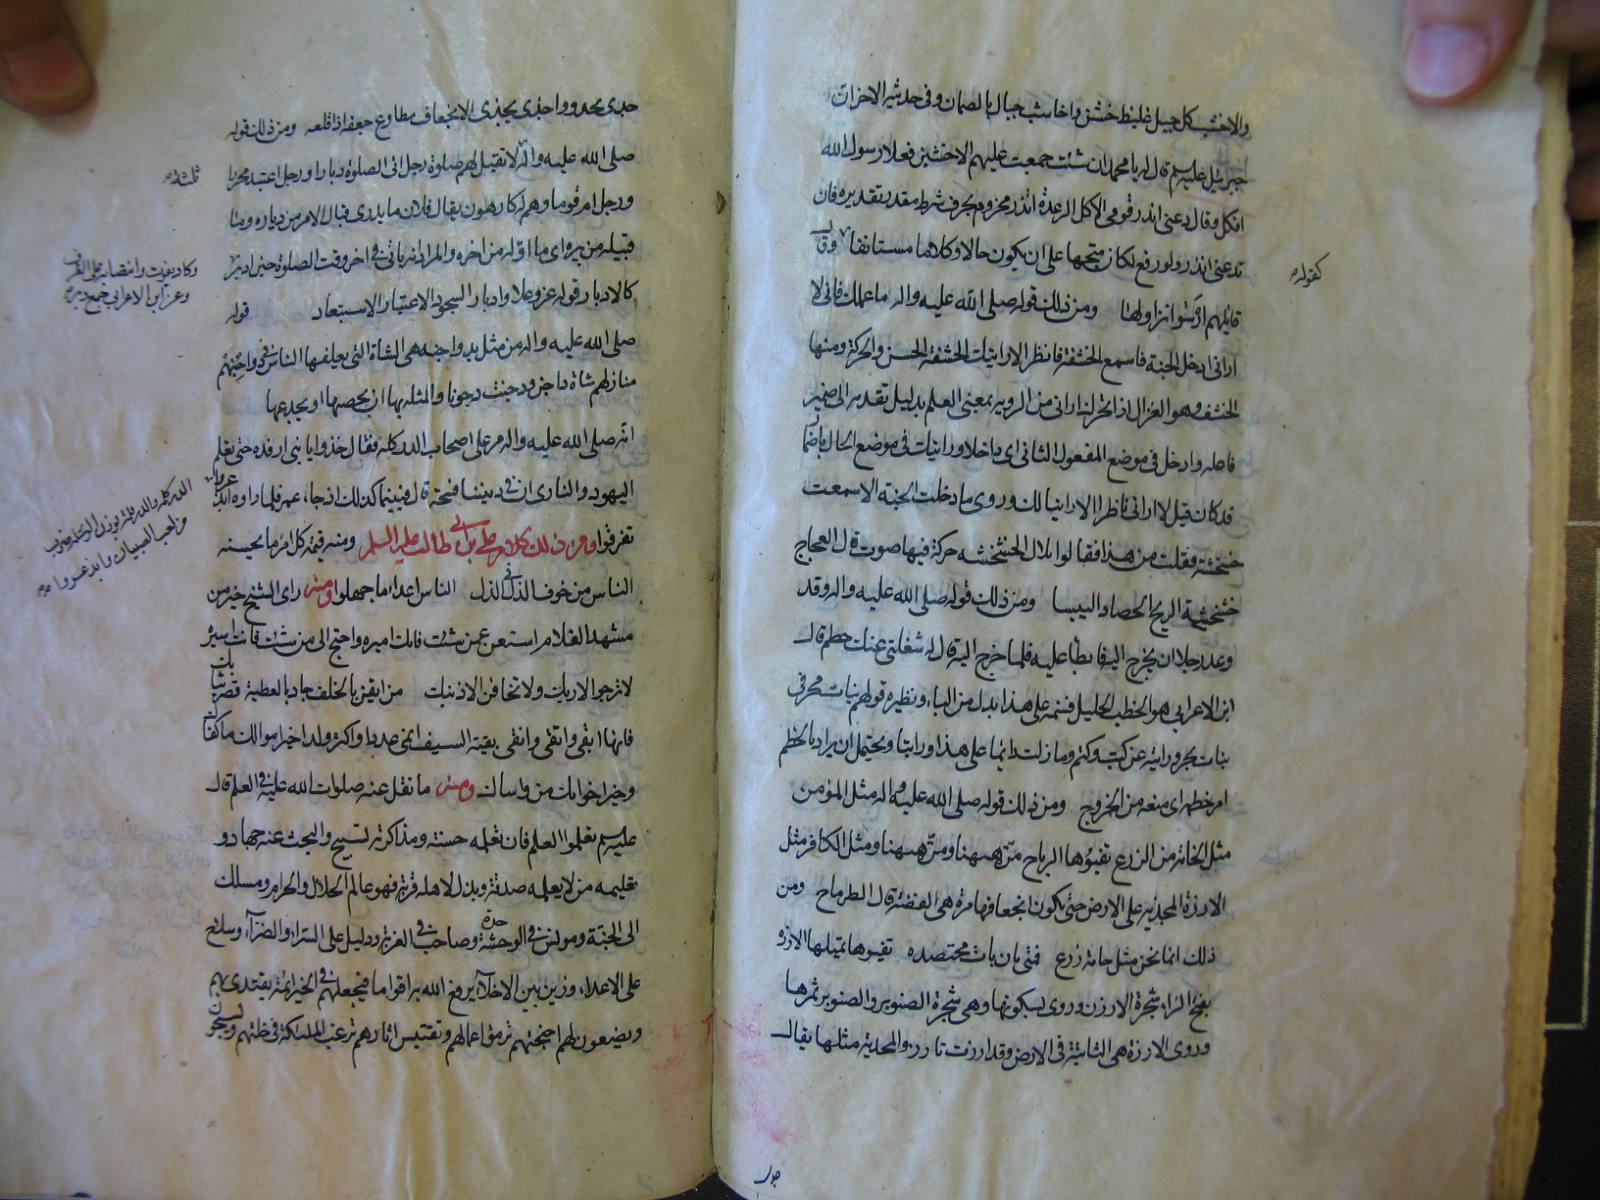 والاخشب كل جبل غليظ خشن واخاشب جبال بالصمان وفى حديثه الاخران
جبرئيل عليه السلم قال له يا محمد ان شئت جمعت عليهم الاخشبين فعلا رسول الله
افكل وقال دعنى انذر قومى الافكل الرعدة انذر مجزوم بحرف شرط مقدر تقديره فان
تدعنى انذر ولو رفع لكان متجها على ان يكون حالا وكلاهما مستانفا وق
كقوله
قايلهم ارسوا نزاولها ومن ذلك قوله صلى الله عليه واله ما عملك فانى لا
ارانى ادخل الجنة فاسمع الخشفة فانظر الا رايتك الخشفة الحس والحركة ومنها
الخشف وهو الغزال اذا تحرك ارانى من الروية بمعنى العلم بدليل تقديره الى ضمير
فاعله وادخل فى موضع المفعول الثانى اى داخلا ورايتك فى موضع الحال
قد كان قيل لا ارانى ناظرا الا رائيا لك وروى ما دخلت الجنة الا سمعت
خشخشة فقلت من هذا فقالوا بلال الخشخشه حركة فيها صوت قال العجاج
خشخشة الريح الحصاد اليبسا ومن ذلك قوله صلى الله عليه واله وقد
وعد رجلا ان يخرج اليه فابطأ عليه فلما خرج اليه قال له شغلنى عنك خطم قال
ابن الاعرابى هو الخطب الجليل فميمه على هذا بدل من الباء ونظيره قولهم بنات مخر فى
بنات بخر ورايته عن كثب وكثم وما زلت راتما على هذا وراتبا ويحتمل ان يراد بالخطم
امر خطمه اى منعه من الخروج ومن ذلك قوله صلى الله عليه واله مثل المؤمن
مثل الخامة من الزرع تفيؤها الرياح مرة ههنا ومرة ههنا ومثل الكافر مثل
الارزة المجذية على الارض حتى يكون انجعافها مرة هى الغضة قال الطرماح ومن
ذلك انما نحن مثل خامة زرع فمتى يان يات مختصده تفيوها تميلها الارزة
بفتح الراء شجرة الارزن وروى بسكونها وهى شجرة الصنوبر والصنوبر ثمرها
وروى الارزة هى الثابتة فى الارض وقد ارزت تارز والمجذية مثلها يقال
جذى يجذو واجذى يجذى الانجعاف مطاوع جعفه اذا قلعه ومن ذلك قوله
صلى الله عليه واله لا تقبل لهم صلوة رجل اتى الصلوة دبارا ورجل اعتبد محررا
ثلثة
ورجل ام قوما وهم له كارهون يقال فلان ما يدرى قبال الامر من دباره وما
قبيله من دبيره اى ما اوله من اخره والمراد انه ياتى فى اخر وقت الصلوة حين ادبر
وكاد يفوت وانتصابه على الظرف
وعن ابن الاعرابى جمع دبر
كالادبار قوله عز وعلا وادبار السجود الاعتبار الاستبعاد قوله
صلى الله عليه واله من مثل بدواجنه هى الشاة التى يعلفها الناس فى
منازلهم شاة داجن ودجنت دجونا والمثلة بها ان يخصيها او يجدعها
انه صلى الله عليه واله مر على اصحاب الدركلة فقال خذوا يا بنى ارفده حتى يعلم
اليهود والنارى ان فى ديننا فسحة قال فبينما كذلك اذ جاء عمر فلما راوه ابذعروا
تفرقوا ومن ذلك كلام على بن ابى طالب عليه السلم ومنه قيمة كل امرء ما يحسنه
الناس من خوف الذل فى الذل الناس اعداء ما جهلوا ومنه راى الشيخ خير من
مشهد الغلام استعن عمن شئت فانت اميره واحتج الى من شئت فانت اسيره
لا ترجوا الا ربك ولا تخافن الا ذنبك من ايقن بالخلف جاد بالعطية قصر ثيابك
فانها ابقى واتقى وانقى بقية السيف انمى عددا واكثر ولدا خير اموالك ما كفاك
وخير اخوانك من واساك ومنه ما نقل عنه صلوات الله عليه فى العلم قال
عليه السلم تعلموا العلم فان تعلمه حسنة ومذاكرته تسبيح والبحث عنه جهاد و
تعليمه من لا يعلمه صدقة وبذله لاهله قربة فهو عالم الحلال والحرام ومسلك
الى الجنة ومونس فى الوحشة وصاحب فى الغربة ودليل على السراء والضراء وسلاح
على الاعداء وزين بين الاخلاء يرفع الله به اقواما فيجعلهم فى الخير ائمة يقتدى بهم
ويضعون لهم اجنحتهم ترمق اعمالهم وتقتبس اثارهم ترغب الملئكة فى خلتهم